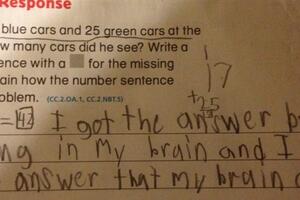 Response
blue cars and 25 green cars at the
w many cars did he see? Write a
ence with a for the missing
ain how the number sentence
oblem. (CC.2.OA.1, CC.2.NBT.5)
17
+25
= 42 I got the answer b
ng in my brain and I
answer that my brain